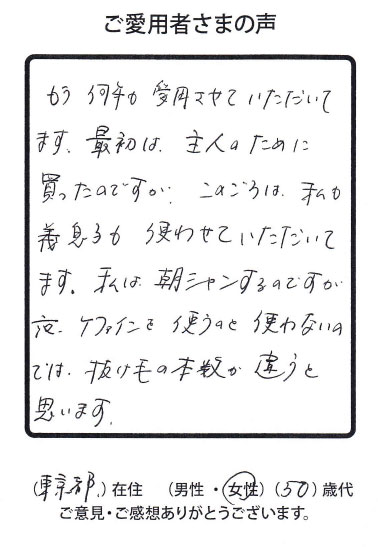 ご愛用者さまの声
もう何年も愛用させていただいて
ます。最初は、主人のために
買ったのですが、このごろは、私も
義息子も使わせていただいて
ます。私は朝シャンするのですが
夜、ケファインを使うのと使わないの
では、抜け毛の本数が違うと
思います。
(東京都)在住 (男性・女性)(50)歳代
ご意見・ご感想ありがとうございます。